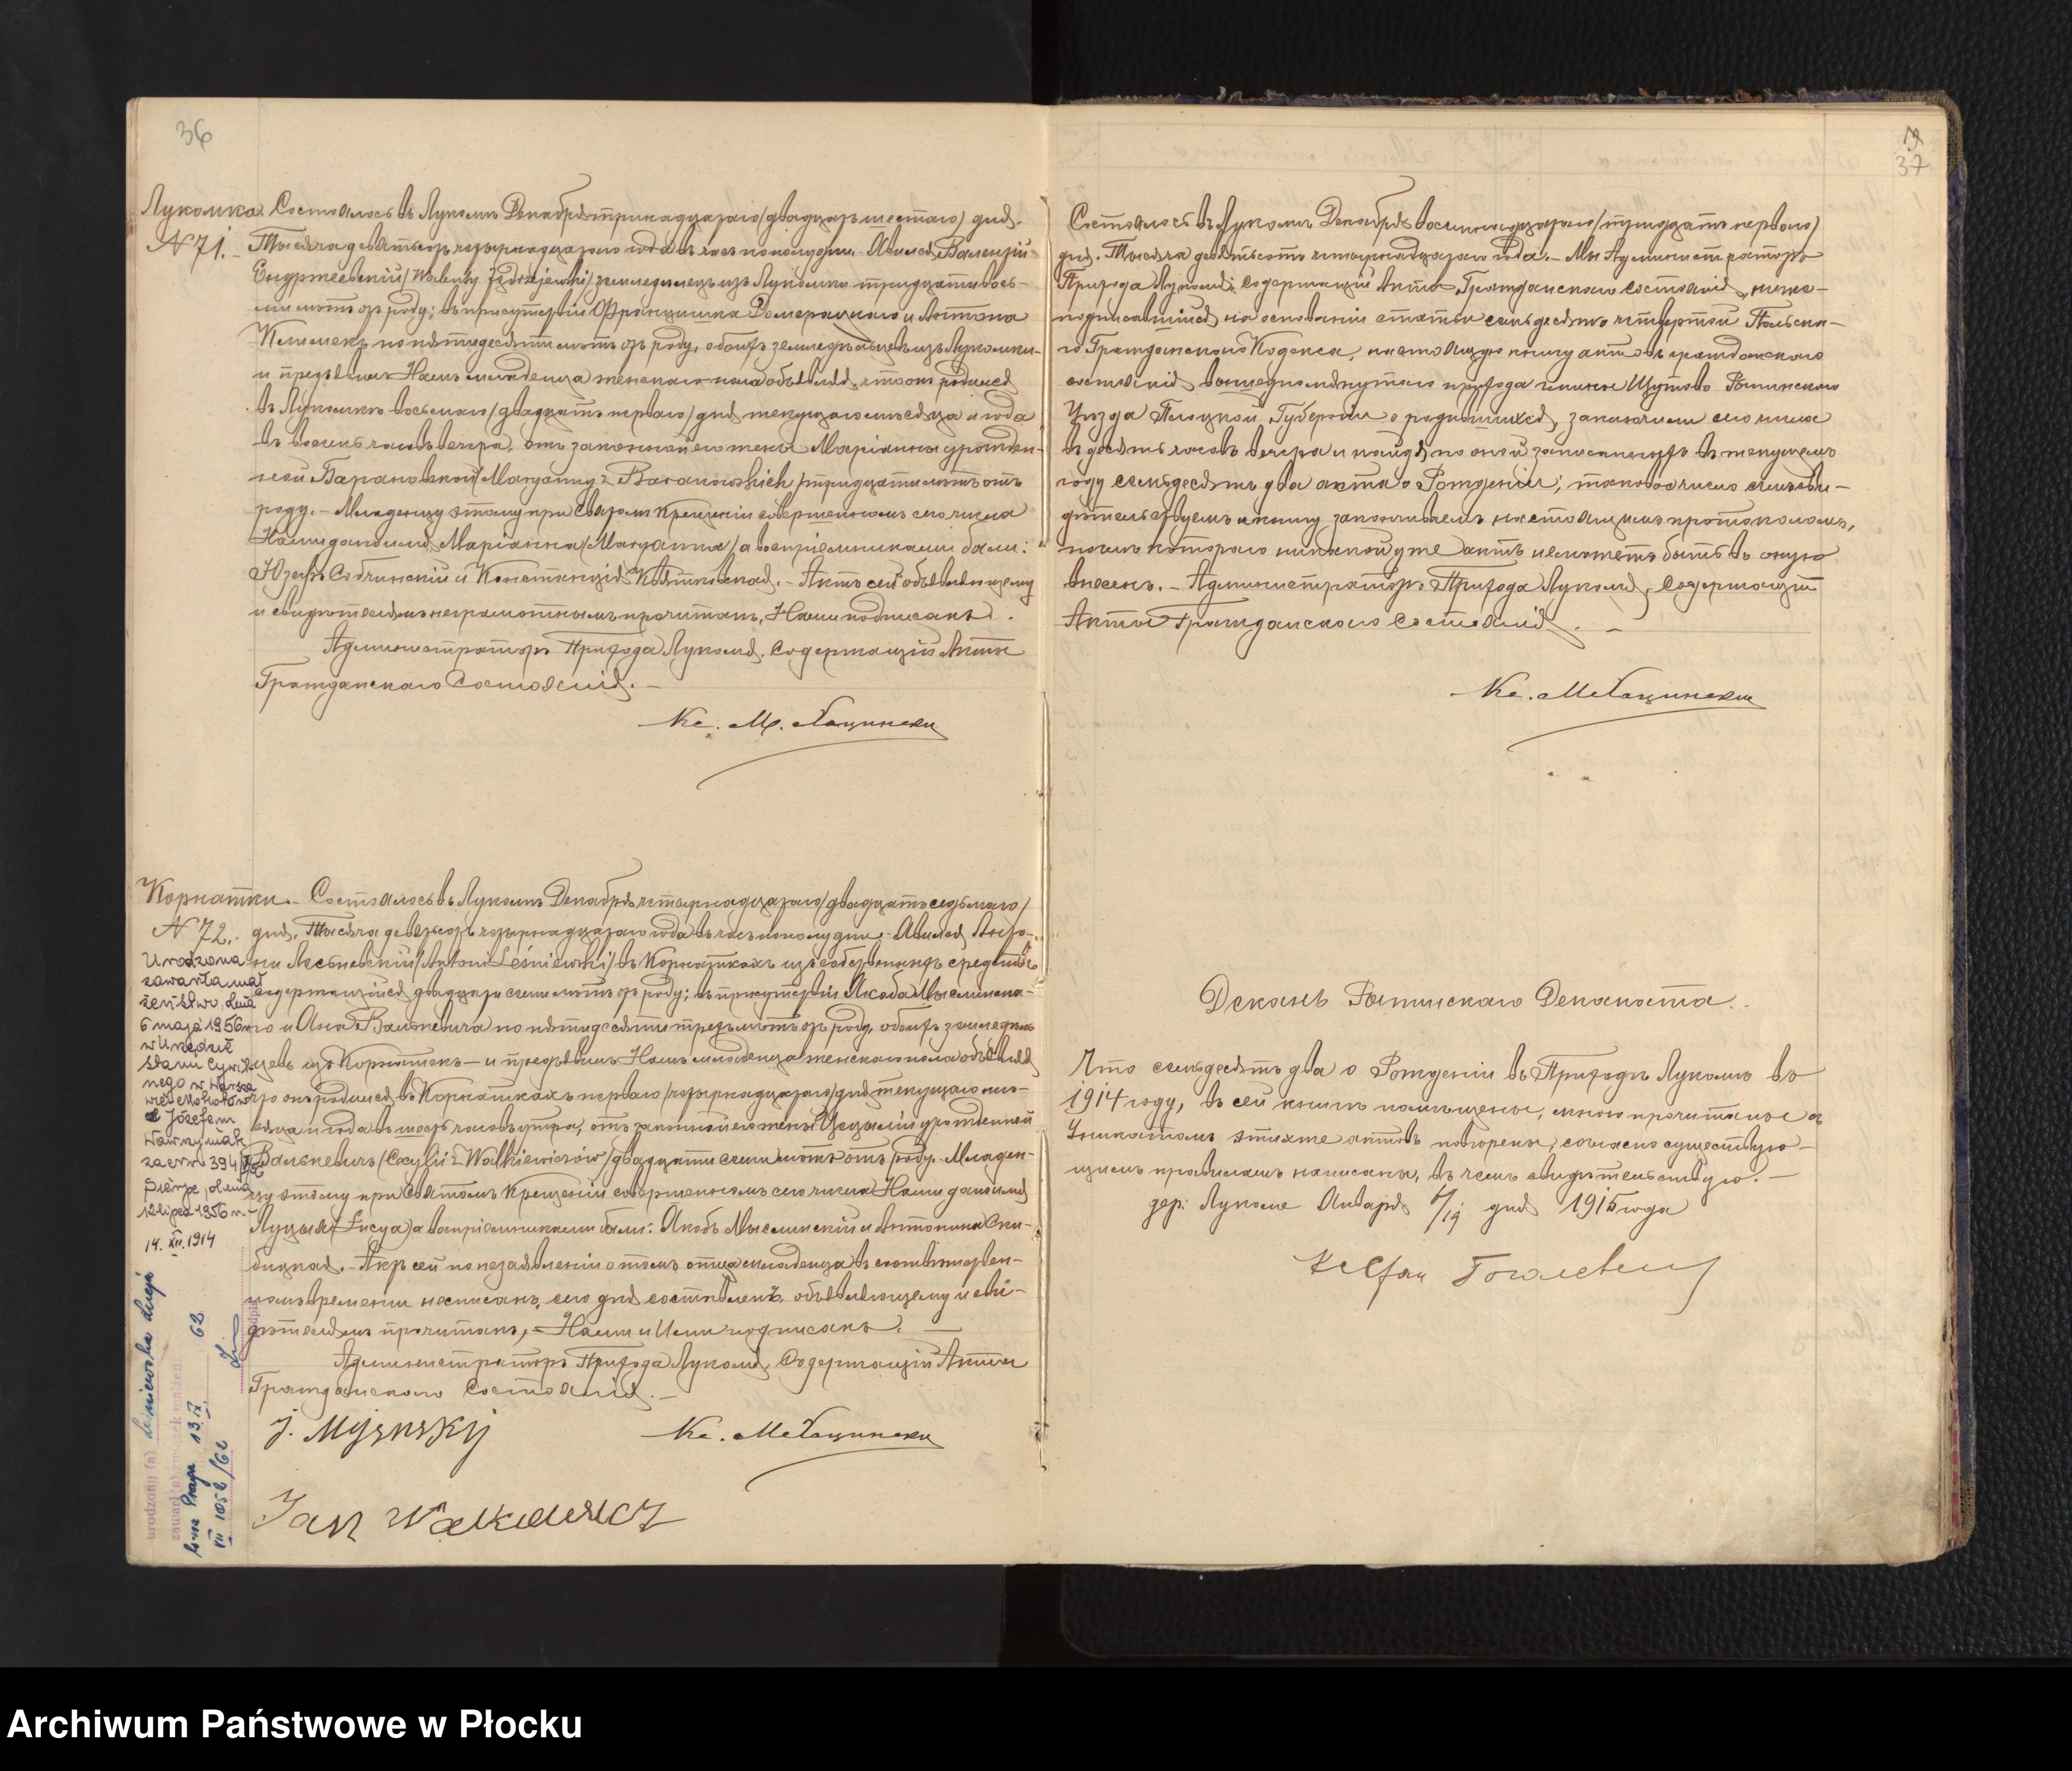 36
Лукомка. Состоялось въ Лукомѣ Декабря тринадцатаго /двадцать шестаго/ дня.
N 71. Тысяча девятьсотъ четырнадцатаго года въ часъ пополудни. Явился Валентій
Ендржеевскій /Walenty Jędrzejewski/ земледѣлецъ изъ Лукомки тридцати вось-
ми лѣтъ отъ роду; въ присутствіи Францишка Домерацкаго и Антона
Климекъ по пятидесяти лѣтъ отъ роду, обоихъ земледѣльцевъ изъ Лукомки
и предъявилъ Намъ младенца женскаго пола объявляя, что онъ родился
въ Лукомкѣ восьмаго /двадцать перваго/ дня текущаго мѣсяца и года
въ восемь часовъ вечера, отъ законной его жены Маріанны урожден-
ной Барановской /Maryanny z Baranowskich/ тридцати лѣтъ отъ
роду. - Младенцу этому при Святомъ Крещеніи совершенномъ сего числа
Нами дано имя Маріанна /Maryanna/ а воспріемниками были:
Юзефъ Собчинскій и Констанція Квятковская. - Актъ сей объявляющему
и свидѣтелямъ неграмотнымъ прочитанъ, Нами подписанъ.
Администраторъ Прихода Лукомя, Содержащій Акты
Гражданскаго Состоянія. -
Кс. М.
Корнатки. - Состоялось въ Лукомѣ Декабря четырнадцатаго /двадцать седьмаго/
N 72. дня, Тысяча девятьсотъ четырнадцатаго года въ часъ пополудни. - Явился Анто-
ни Лесневскій /Antoni Leśniewski/ въ Корнаткахъ изъ собственныхъ средствъ
содержащійся двадцати семи лѣтъ отъ роду; въ присутствіи Якоба Мыслинска-
го и Яна Валкевича по пятидесяти три лѣтъ отъ роду, обоихъ земледѣль
цевъ изъ Корнатокъ - и предъявилъ Намъ младенца женскаго пола объявляя
что онъ родился въ Корнаткахъ перваго /четырнадцатаго/ дня текущаго мѣ-
сяца и года въ шесть часовъ утра, отъ законной его жены Цецыліи урожденной
Валькевичъ /Cecylii z Walkiewiczów/ двадцати семи лѣтъ отъ роду. - Младен-
цу этому при Святомъ Крещеніи совершенномъ сего числа Нами дано имя
Луція /Łucya/ а воспріемниками были: Якобъ Мыслинскій и Антонина Ски-
бицкая. - Актъ сей по незаявленіи о томъ отца младенца въ соотвѣтствен-
номъ времени несписанъ, сего дня составленъ, объявляющему и сви-
дѣтелямъ прочитанъ, - Нами и Ими подписанъ. -
Администраторъ Прихода Лукомя, Содержащій Акты
Гражданскаго Состоянія. -
Кс. М.
Jan Walkiewicz
Urodzona
zawarła mał
żeństwo, dnia
6 maja 1956 r.
w Urzędzie
Stanu Cywil
nego w Warsza
wie Mokotów
z Józefem
Wawrzyniak
za nr 394/
Sierpc, dnia
12 lipca 1956 r.
14. XII. 1914
urodzony (a) Leśniewska Łucja
zawarł(a) związek małżeń
Praga
VII 1052/62
62
37
Состоялось въ Лукомѣ Декабря восемнадцатаго /тридцать перваго/
дня. Тысяча девятьсотъ четырнадцатаго года. - Мы Администраторъ
Прихода Лукомя, содержащій Акты Гражданскаго Состоянія, ниже-
подписавшійся на основаніи статьи семьдесятъ четвертой Польска-
го Гражданскаго Кодекса, настоящую книгу актовъ гражданскаго
состоянія вышеупомянутаго прихода гмины Щутово Рыпинскаго
Уѣзда Плоцкой Губерніи о родившихся, заключили сего числа
въ десять часовъ вечера и найдя по оной записанныхъ въ текущемъ
году семьдесятъ два акта о Рожденіи; таковое число симъ сви-
дѣтельствуемъ и книгу заключаемъ настоящимъ протоколомъ,
послѣ котораго никакой уже актъ не можетъ быть въ оную
внесенъ. - Администраторъ Прихода Лукомя, Содержащій
Акты Гражданскаго Состоянія. -
Кс. М.
Деканъ Рыпинскаго Деканата.
Что семьдесятъ два о Рожденіи въ Приходѣ Лукомѣ во
1914 году, въ сей книгѣ помѣщены, мною прочитаны а
Уникатомъ этихже актовъ повѣрены, согласно существую-
щимъ правиламъ написаны, въ чемъ свидѣтельствую. -
дер. Лукоме Января 6/19 дня 1915 года
Archiwum Państwowe w Płocku